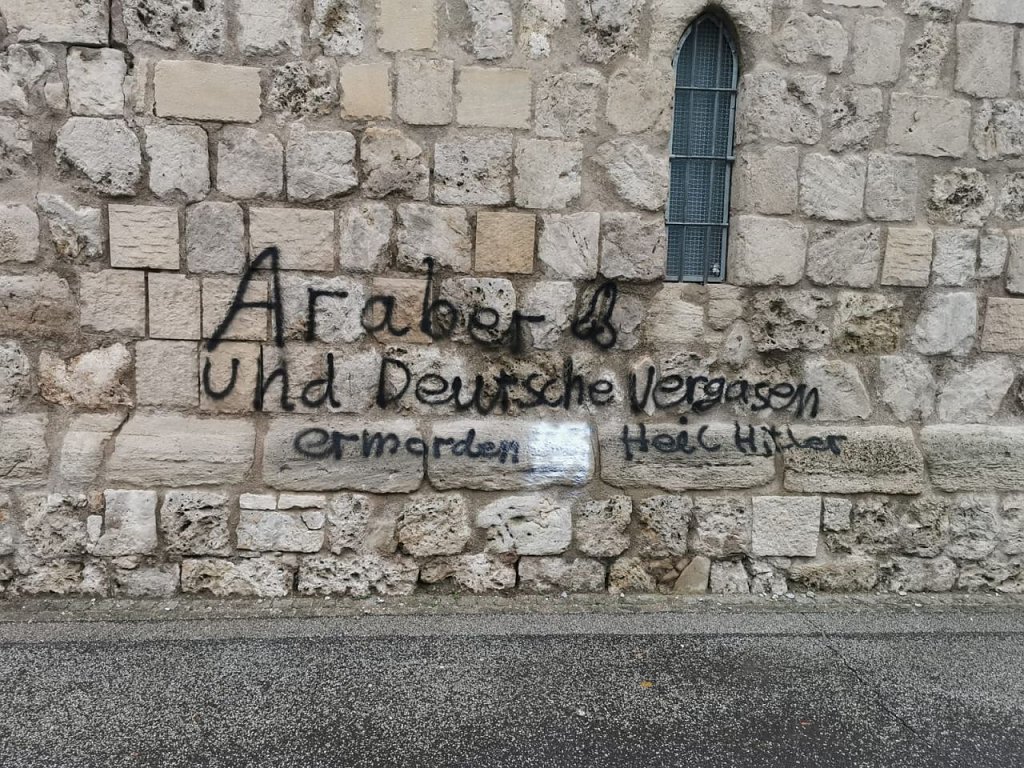 Araber
und Deutsche Vergasen
ermorden Heil Hitler